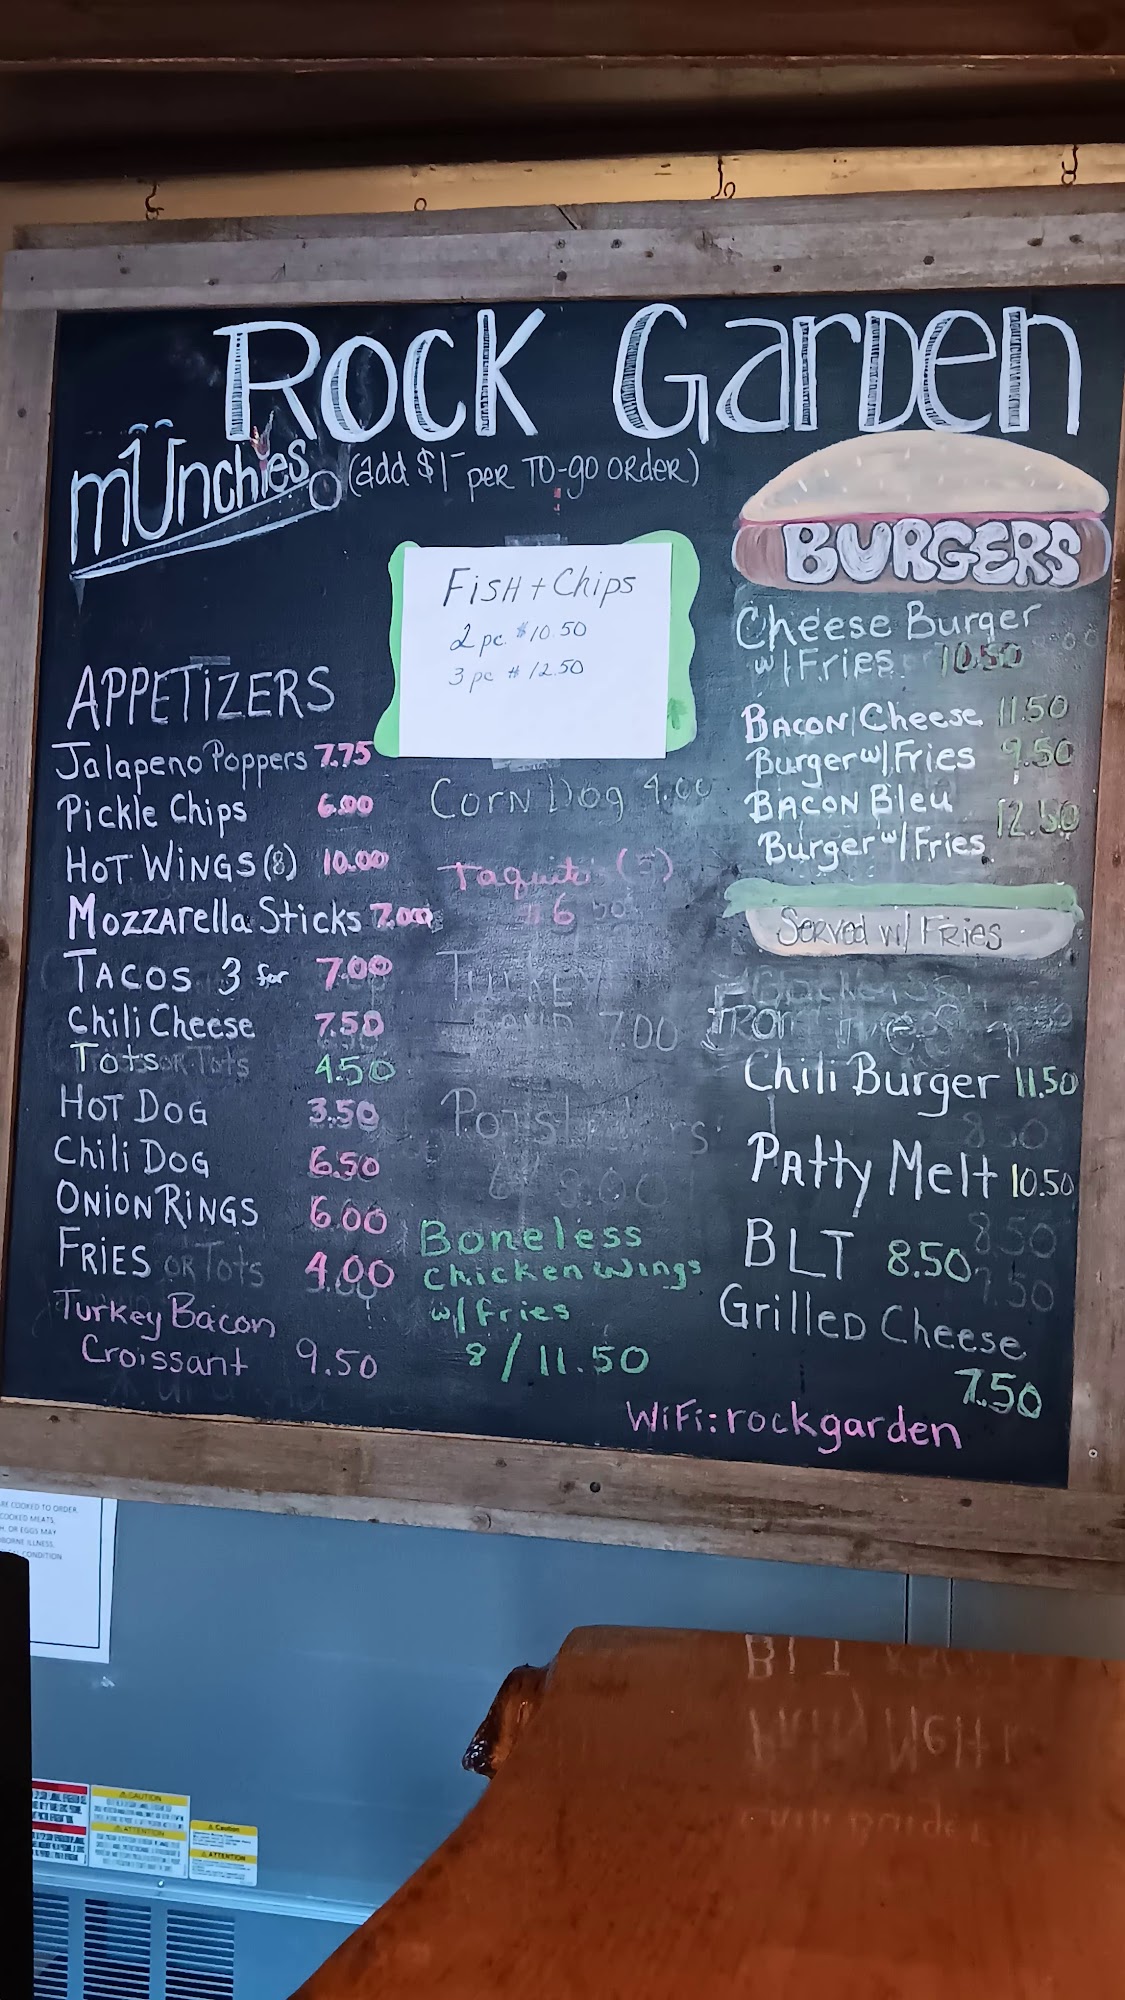 ROCK GARDEN
munchies (add $1- per TO-go ORder)
Fish + Chips
2 pc. $10.50
3 pc $12.50
APPETIZERS
Jalapeno Poppers 7.75
Pickle Chips 6.00
HOT WINGS (8) 10.00
Mozzarella Sticks 7.00
TACOS 3 for 7.00
Chili Cheese 7.50
Tots OR Tots 4.50
HOT DOG 3.50
Chili DOG 6.50
ONION RINGS 6.00
FRIES OR Tots 4.00
Turkey Bacon
Croissant 9.50
CORN Dog 4.00
Taquit (5)
Turkey
7.00
Boneless
Chicken Wings
w/ fries
8/11.50
BURGERS
Cheese Burger
w/ Fries 10.50
BACON/Cheese 11.50
Burger w/ Fries 9.50
BACON Bleu
Burger w/ Fries 12.50
Served w/ FRIES
Chili Burger 11.50
8.50
Patty Melt 10.50
8.50
BLT 8.50
7.50
Grilled Cheese
7.50
WiFi: rockgarden
RE COOKED TO ORDER.
COOKED MEATS,
H, OR EGGS MAY
BORNE ILLNESS.
CONDITION
CAUTION
ATTENTION
Caution
ATTENTION